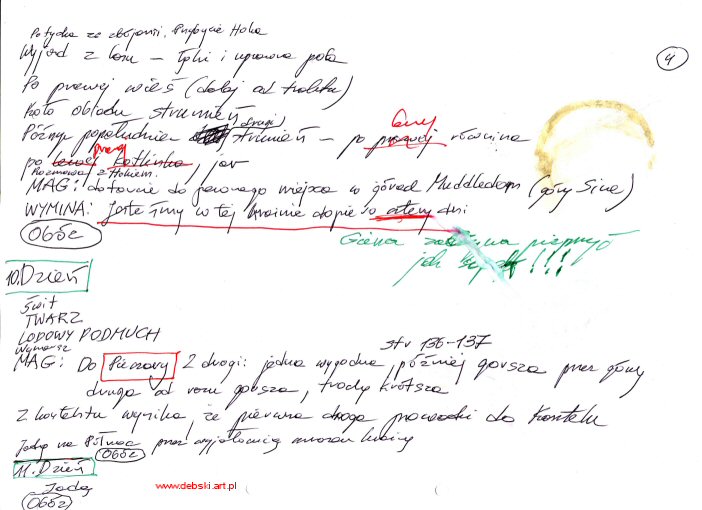 Potyczka ze zbójami. Przybycie Hoka
Wyjazd z lasu – łąki i uprawne pola
Po prawej wieś (dalej od traktu)
Koło obiadu strumień
4
Późnym popołudniem drugi strumień – po prawej lewej równina
po lewej prawej kotlinka, jar
Rozmowa z Hokiem.
MAG: dotarcie do pewnego miejsca w górach Muddledom (góry Sine)
WYMINA: Jesteśmy w tej krainie dopiero cztery dni
OBÓZ
jak !!!
10. Dzień
Świt
TWARZ
LODOWY PODMUCH
Wymarsz
str 136-137
MAG: Do 2 drogi: jedna wygodna, później gorsza przez góry
druga od razu gorsza, trochę krótsza
Z kontekstu wynika, że pierwsza droga prowadzi do
Jadą na Północ przez krainę
OBÓZ
11. Dzień
Jadą
OBÓZ
www.debski.art.pl